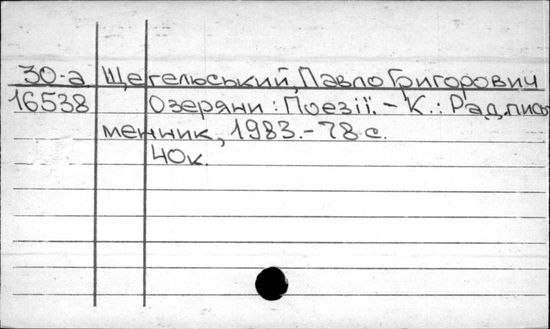 30-а Щегельський, Павло Григорович
16538 Озеряни : Поезії. – К. : Рад. пись
менник, 1983. – 78 с.
40к.